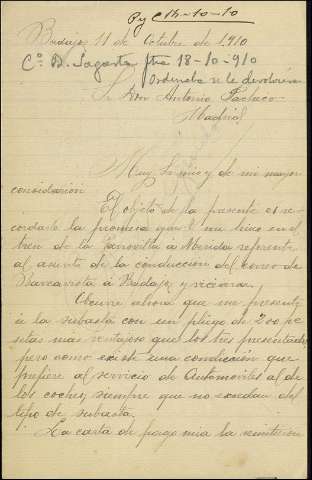 Py C 14-10-10
Badajoz 11 de Octubre de 1910
Cº B. Sagasta fha 18-10-910
Ordenaba se le devolviera
Sr Don Antonio Pacheco
Madrid
Muy Sr mio y de mi mayor
consideración
El objeto de la presente es re-
cordarle la promesa que me hizo en el
tren de la Zarzuela á Merida referente
al asunto de la conducción del correo de
Barcarrota á Badajoz y viceversa.
Ocurre ahora que me presenté
á la subasta con un pliego de 200 pe
setas mas ventajoso que los tres presentados
pero como existe una condición que
prefiere al servicio de Automoviles al de
los coches, siempre que no excedan del
tipo de subasta.
La carta de pago mia la remitieron